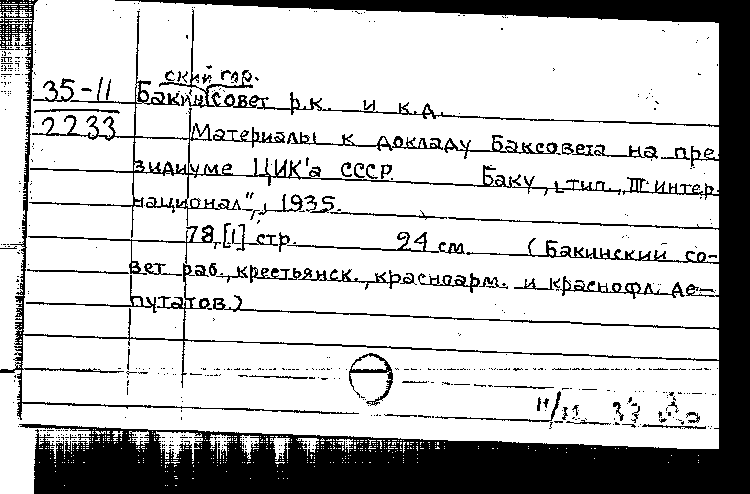 ский гор.
35-11 Бакинсовет р.к. и к.д.
2233 Материалы к докладу Баксовета на пре-
зидиуме ЦИК'а СССР. Баку, тип. „III интер-
национал", 1935.
78, [1] стр. 24 см. (Бакинский со-
вет раб., крестьянск., красноарм. и краснофл. де-
путатов.)